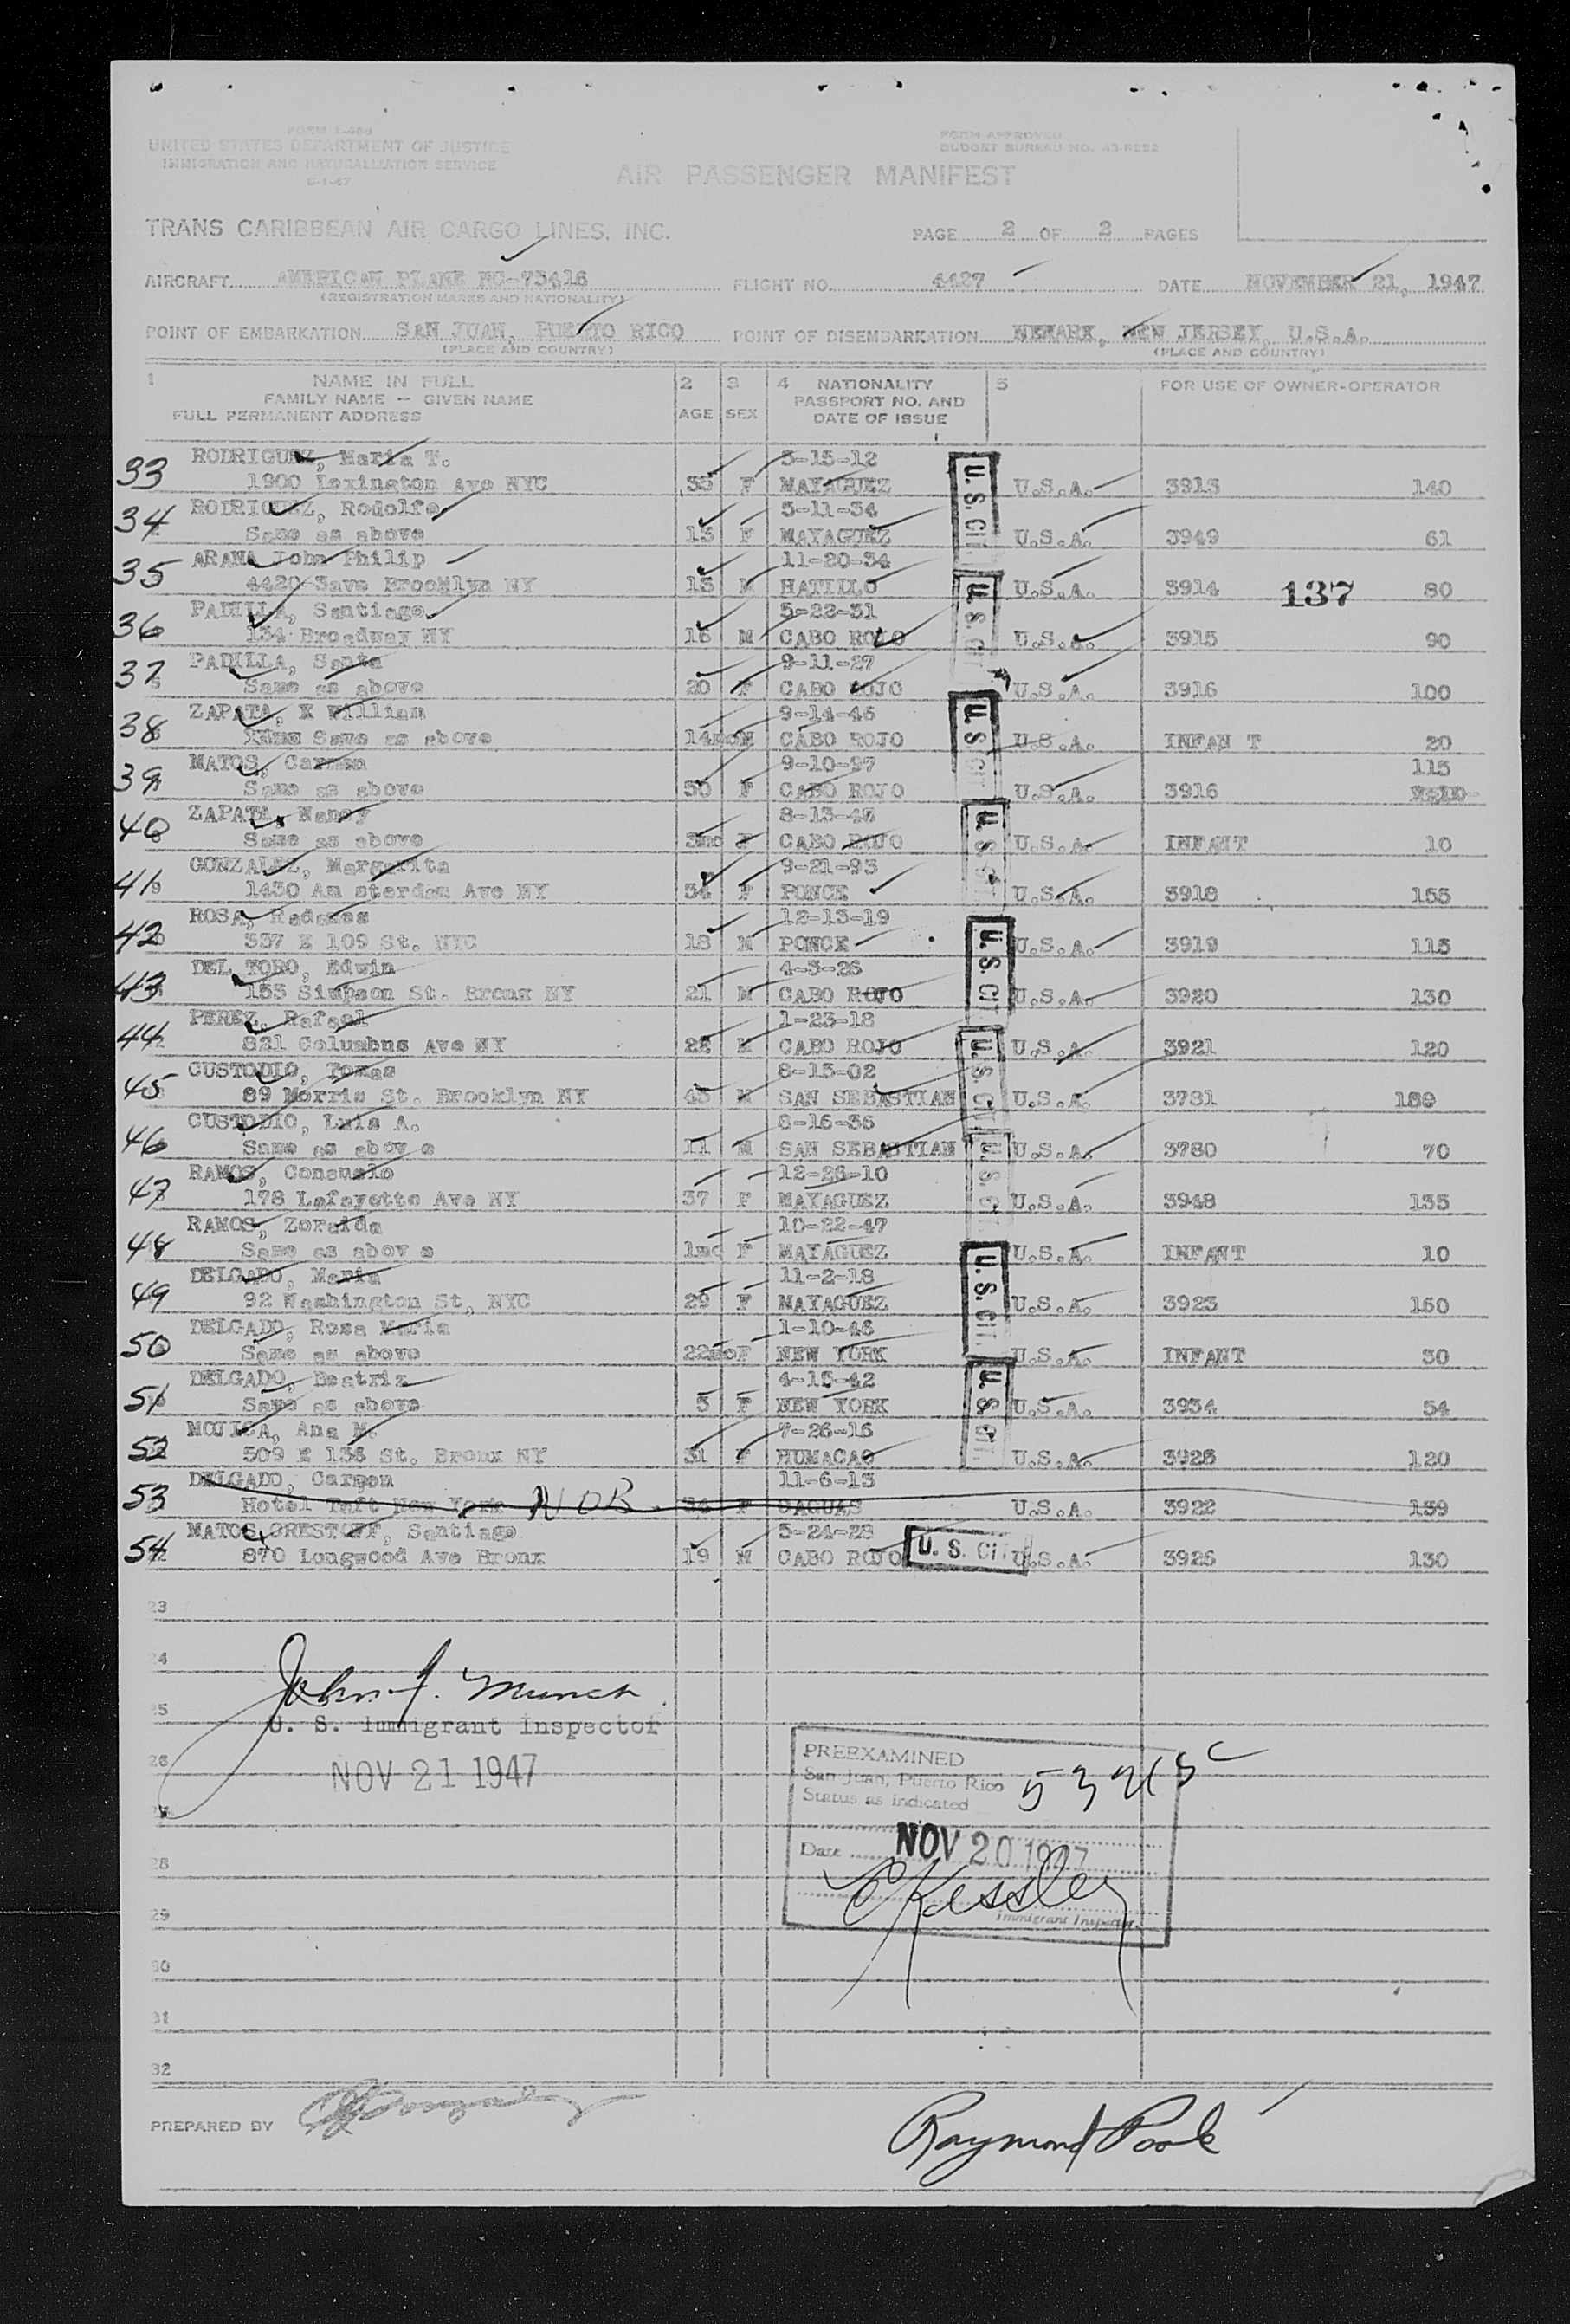 FORM I-466
UNITED STATES DEPARTMENT OF JUSTICE
IMMIGRATION AND NATURALIZATION SERVICE
FORM APPROVED
BUDGET BUREAU NO. 43-R252
AIR PASSENGER MANIFEST
TRANS CARIBBEAN AIR CARGO LINES, INC.
PAGE 2 OF 2 PAGES
AIRCRAFT AMERICAN PLANE NC-73416 FLIGHT NO. 4427 DATE NOVEMBER 21, 1947
(REGISTRATION MARKS AND NATIONALITY)
POINT OF EMBARKATION SAN JUAN, PUERTO RICO POINT OF DISEMBARKATION NEWARK, NEW JERSEY, U.S.A.
(PLACE AND COUNTRY) (PLACE AND COUNTRY)
1 NAME IN FULL 2 3 4 NATIONALITY 5 FOR USE OF OWNER-OPERATOR
FAMILY NAME — GIVEN NAME PASSPORT NO. AND
FULL PERMANENT ADDRESS AGE SEX DATE OF ISSUE
33 RODRIGUEZ, Maria T. 5-15-12
1900 Lexington Ave NYC 35 F MAYAGUEZ U.S.A. 3913 140
34 RODRIGUEZ, Rodolfo 5-11-34
Same as above 13 F MAYAGUEZ U.S.A. 3949 61
35 ARANA John Philip 11-20-34
4420-3ave Brooklyn NY 13 M HATILLO U.S.A. 3914 137 80
36 PADILLA, Santiago 5-22-31
134 Broadway NY 16 M CABO ROJO U.S.A. 3915 90
37 PADILLA, Santa 9-11-27
Same as above 20 F CABO ROJO U.S.A. 3916 100
38 ZAPATA, X William 9-14-46
Same as above 14mo M CABO ROJO U.S.A. INFAN T 20
39 MATOS, Carmen 9-10-97 115
Same as above 50 F CABO ROJO U.S.A. 3916
40 ZAPATA, Nancy 8-13-47
Same as above 3mo F CABO ROJO U.S.A. INFANT 10
41 GONZALEZ, Margarita 9-21-93
1430 Am sterdam Ave NY 54 F PONCE U.S.A. 3918 155
42 ROSA, 12-13-19
337 E 109 St. NYC 18 M PONCE U.S.A. 3919 115
43 DEL TORO, Edwin 4-3-26
153 Simpson St. Bronx NY 21 M CABO ROJO U.S.A. 3920 130
44 PEREZ, Rafael 1-23-18
821 Columbus Ave NY 28 M CABO ROJO U.S.A. 3921 120
45 CUSTODIO, Tomas 8-15-02
89 Morris St. Brooklyn NY 45 M SAN SEBASTIAN U.S.A. 3781 189
46 CUSTODIO, Luis A. 8-16-36
Same as abov e 11 M SAN SEBASTIAN U.S.A. 3780 70
47 RAMOS, Consuelo 12-26-10
178 Lafayette Ave NY 37 F MAYAGUEZ U.S.A. 3948 135
48 RAMOS, Zoraida 10-22-47
Same as abov e 1mo F MAYAGUEZ U.S.A. INFANT 10
49 DELGADO, Maria 11-2-18
92 Washington St, NYC 29 F MAYAGUEZ U.S.A. 3923 150
50 DELGADO, Rosa Maria 1-10-46
Same as above 22mo F NEW YORK U.S.A. INFANT 30
51 DELGADO, Beatriz 4-15-42
Same as above 5 F NEW YORK U.S.A. 3934 54
52 MOJICA, Ana M. 7-26-16
509 E 138 St. Bronx NY 31 F HUMACAO U.S.A. 3925 120
53 DELGADO, Carmen 11-6-13
Hotel Taft New York NOB 34 F CAGUAS U.S.A. 3922 139
54 MATOS GRESTOFF, Santiago 5-24-28
870 Longwood Ave Bronx 19 M CABO ROJO U. S. CIT U.S.A. 3926 130
U. S. CIT
U. S. CIT
U. S. CIT
U. S. CIT
U. S. CIT
U. S. CIT
U. S. CIT
U. S. CIT
U. S. CIT
23
24
John J. Munch
25
U. S. Immigrant Inspector
26
NOV 21 1947
PREEXAMINED
San Juan, Puerto Rico
Status as indicated
Date NOV 20 1947
Kessler
Immigrant Inspector.
28
29
30
31
32
PREPARED BY
Raymond Poole